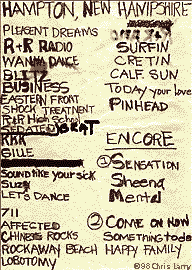 HAMPTON, NEW HAMPSHIRE
PLEASENT DREAMS
R+R RADIO
WANNA DANCE
BLITZ
BUSINESS
EASTERN FRONT
SHOCK TREATMENT
R+R High School
SEDATED
RKR
GILLE
SOUND like your sick
Suzy
LET'S DANCE
711
AFFECTED
CHINESE ROCKS
ROCKAWAY BEACH
LOBOTOMY
SURFIN
CRETIN
CALF. SUN
TODAY your love
PINHEAD
ENCORE
① SENSATION
Sheena
Mental
② COME ON NOW
SOMETHING TO DO
HAPPY FAMILY
©98 Chris Larry